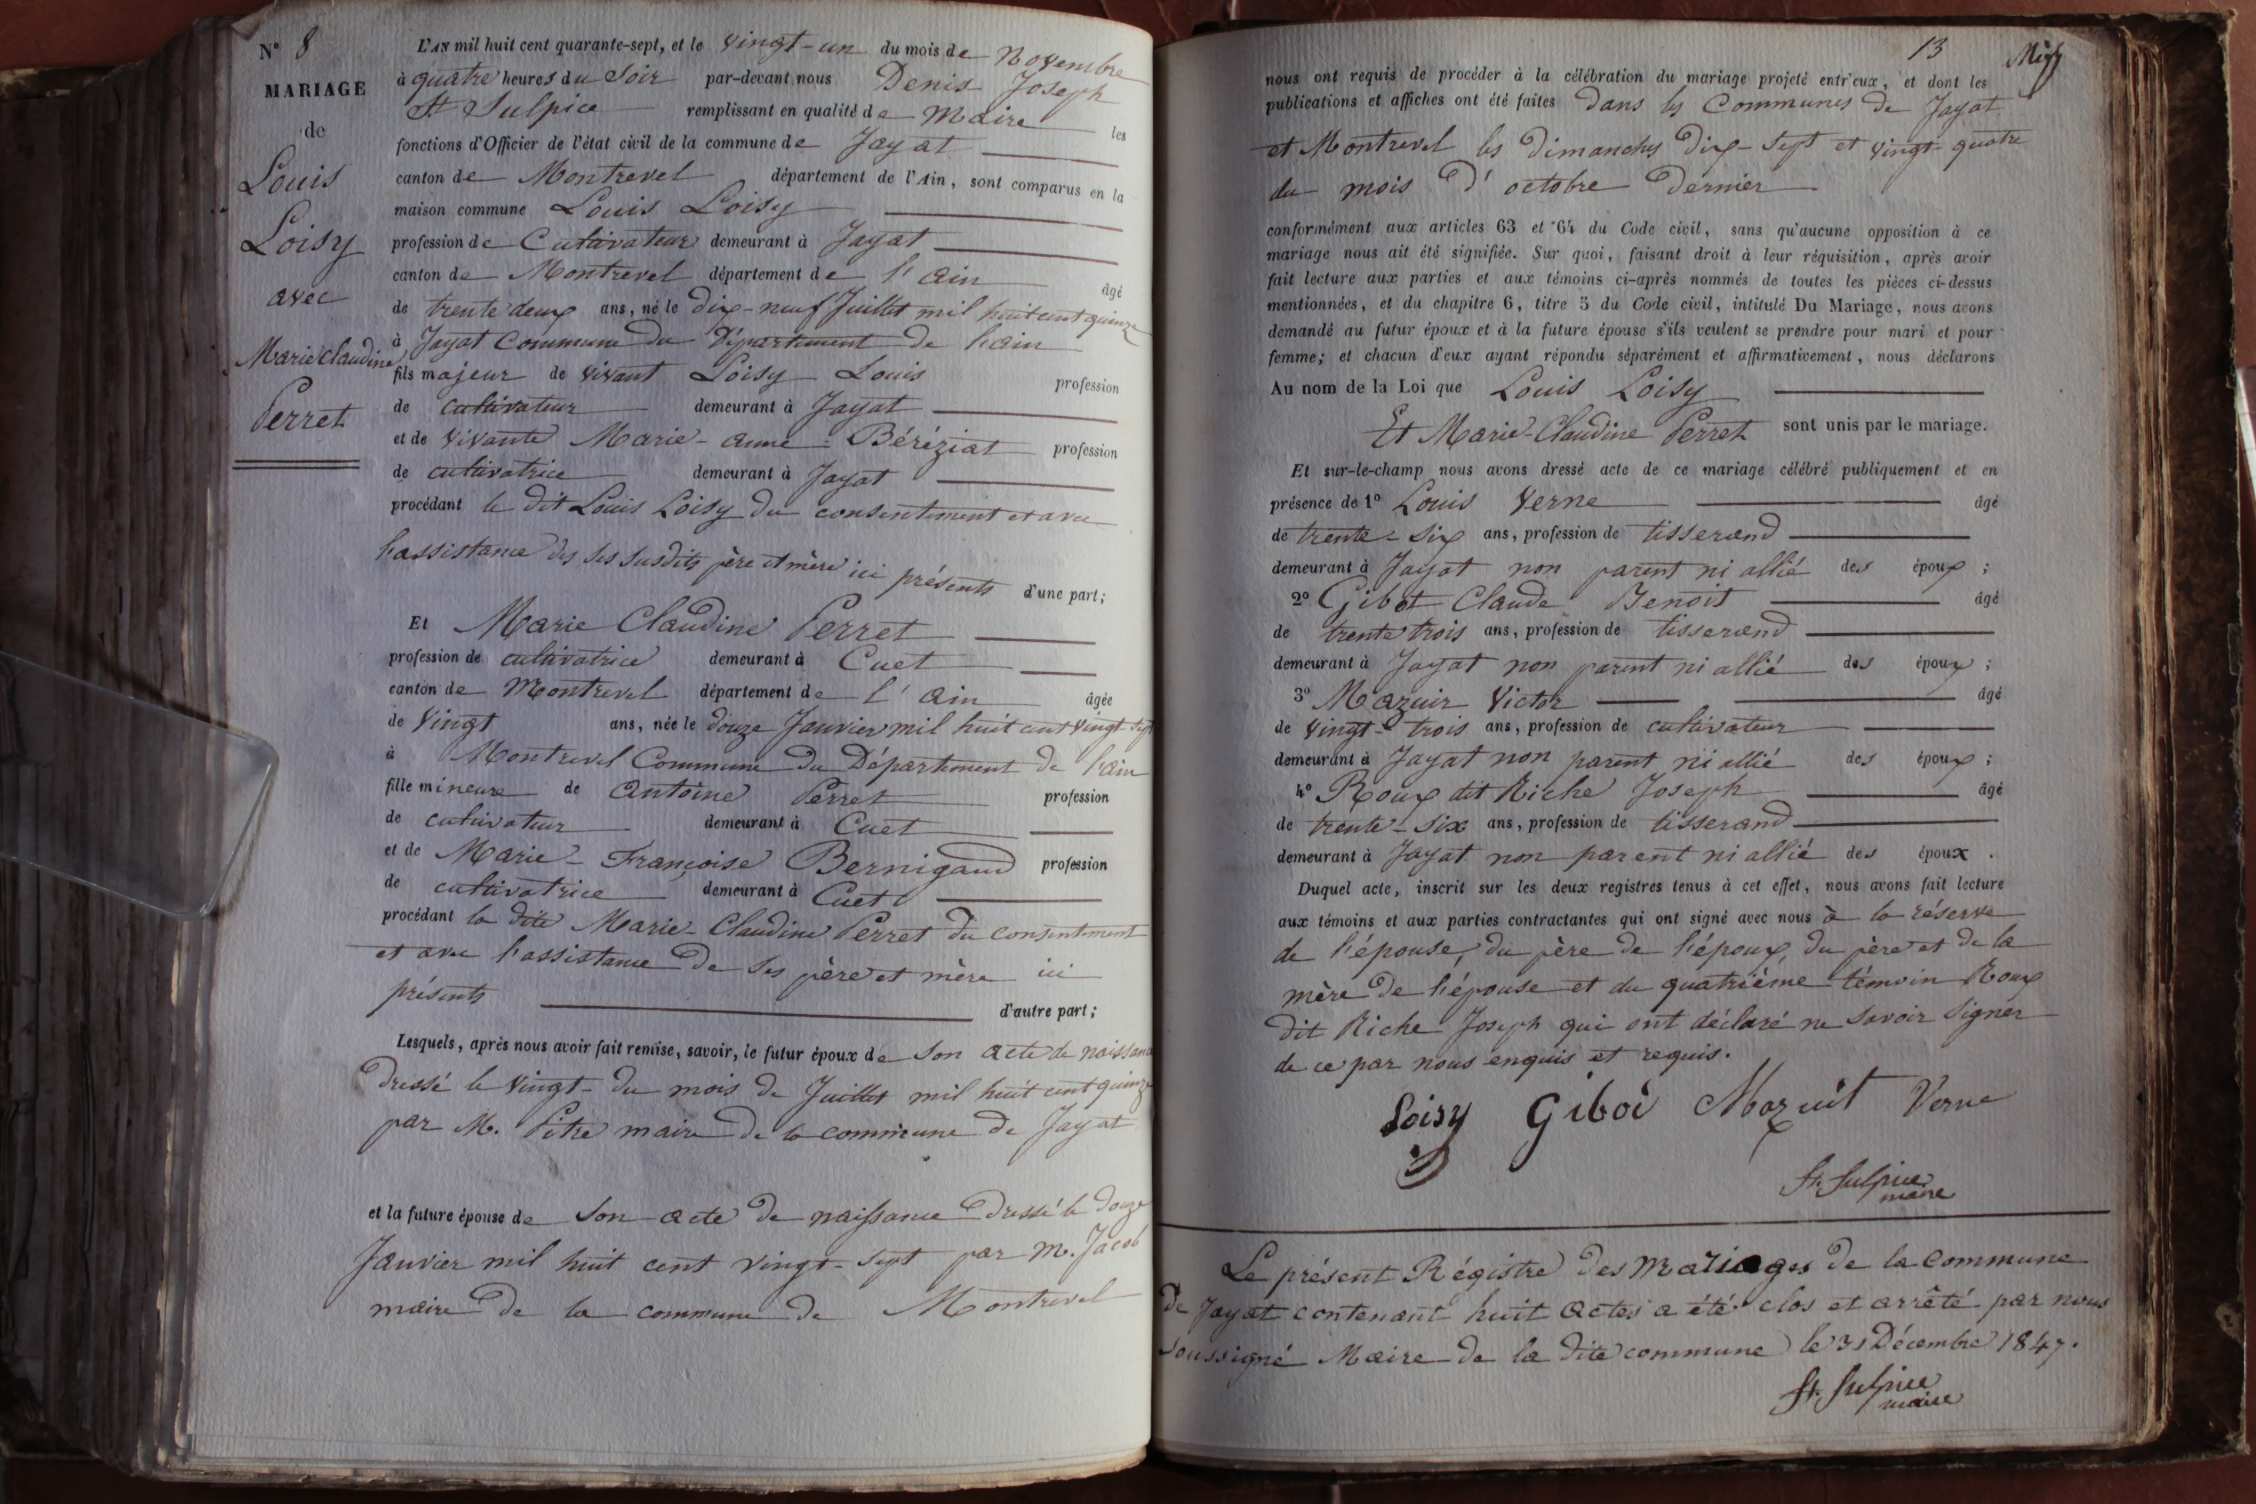 N° 8
MARIAGE
de
Louis
Loisy
avec
Marie Claudine
Perret
L'AN mil huit cent quarante-sept, et le vingt-un du mois de Novembre
à quatre heures du Soir par-devant nous Denis Joseph
St Sulpice remplissant en qualité de Maire les
fonctions d'Officier de l'état civil de la commune de Jayat
canton de Montrevel département de l'Ain, sont comparus en la
maison commune Louis Loisy
profession de Cultivateur demeurant à Jayat
canton de Montrevel département de l'ain âgé
de trente deux ans, né le dix-neuf Juillet mil huit cent quinze
à Jayat Commune du Département de l'ain
fils majeur de vivant Loisy Louis profession
de cultivateur demeurant à Jayat
et de vivante Marie-anne Béréziat profession
de cultivatrice demeurant à Jayat
procédant le dit Louis Loisy du consentement et avec
l'assistance des ses susdits père et mère ici présents d'une part;
Et Marie Claudine Perret
profession de cultivatrice demeurant à Cuet
canton de Montrevel département de l'ain âgée
de vingt ans, née le douze Janvier mil huit cent vingt-sept
à Montrevel Commune du Département de l'ain
fille mineure de Antoine Perret profession
de cultivateur demeurant à Cuet
et de Marie-Françoise Bernigaud profession
de cultivatrice demeurant à Cuet
procédant la dite Marie-Claudine Perret du consentement
et avec l'assistance de ses père et mère ici
présents d'autre part;
Lesquels, après nous avoir fait remise, savoir, le futur époux de son acte de naissance
dressé le vingt du mois de Juillet mil huit cent quinze
par M. Pitre maire de la commune de Jayat
et la future épouse de son acte de naissance dressé le douze
Janvier mil huit cent vingt-sept par M. Jacob
maire de la commune de Montrevel
13
nous ont requis de procéder à la célébration du mariage projeté entr'eux, et dont les
publications et affiches ont été faites dans les Communes de Jayat
et Montrevel les dimanches dix-sept et vingt-quatre
du mois d'octobre dernier
conformément aux articles 63 et 64 du Code civil, sans qu'aucune opposition à ce
mariage nous ait été signifiée. Sur quoi, faisant droit à leur réquisition, après avoir
fait lecture aux parties et aux témoins ci-après nommés de toutes les pièces ci-dessus
mentionnées, et du chapitre 6, titre 5 du Code civil, intitulé Du Mariage, nous avons
demandé au futur époux et à la future épouse s'ils veulent se prendre pour mari et pour
femme; et chacun d'eux ayant répondu séparément et affirmativement, nous déclarons
Au nom de la Loi que Louis Loisy
Et Marie-Claudine Perret sont unis par le mariage.
Et sur-le-champ nous avons dressé acte de ce mariage célébré publiquement et en
présence de 1° Louis Verne âgé
de trente-six ans, profession de tisserand
demeurant à Jayat non parent ni allié des époux;
2° Gibot Claude Benoit âgé
de trente trois ans, profession de tisserand
demeurant à Jayat non parent ni allié des époux;
3° Mazuir Victor âgé
de vingt-trois ans, profession de cultivateur
demeurant à Jayat non parent ni allié des époux;
4° Roux dit Riche Joseph âgé
de trente-six ans, profession de tisserand
demeurant à Jayat non parent ni allié des époux.
Duquel acte, inscrit sur les deux registres tenus à cet effet, nous avons fait lecture
aux témoins et aux parties contractantes qui ont signé avec nous à la réserve
de l'épouse, du père de l'époux, du père et de la
mère de l'épouse et du quatrième témoin Roux
dit Riche Joseph qui ont déclaré ne savoir signer
de ce par nous enquis et requis.
Loisy Giboi Mazuit Verne
St. Sulpice
maire
Le présent Régistre des Mariages de la commune
de Jayat contenant huit actes a été clos et arrêté par nous
soussigné Maire de la dite commune le 31 Décembre 1847.
St. Sulpice
maire